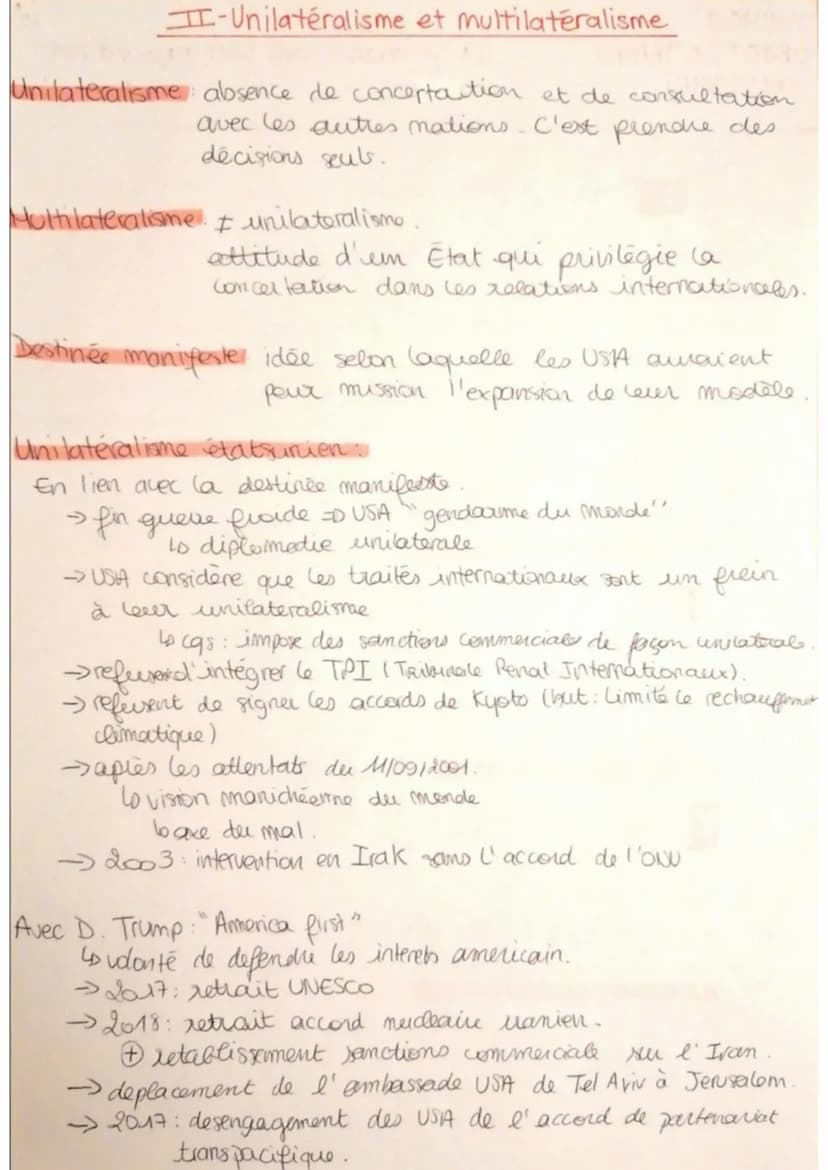 II-Unilatéralisme et multilatéralisme
Unilateralisme : absence de concertaition et de consultation
avec les autres nations. C'est prendre des
décisions seuls.
Multilateralisme : ≠ unilateralisme.
attitude d'un État qui privilégie la
concertation dans les relations internationales.
Destinée manifeste idée selon laquelle les USA auraient
pour mission l'expansion de leur modèle.
Unilatéralisme étatsunien :
En lien avec la destinée manifeste.
→ fin guerre froide ⇒ USA "gendarme du monde"
↳ diplomatie unilaterale
→ USA considère que les traités internationaux sont un frein
à leur unilateralisme
↳ cqs : impose des sanctions commerciales de façon unilaterale.
→ refusent d'intégrer le TPI (Tribunale Penal Internationaux).
→ refusent de signer les accords de Kyoto (but : Limité le rechauffement
climatique)
→ après les attentats du 11/09/2001.
↳ vision manichéenne du monde
↳ axe du mal.
→ 2003 : intervention en Irak sans l'accord de l'ONU
Avec D. Trump : "America first"
↳ volonté de defendre les interets americain.
→ 2017 : retrait UNESCO
→ 2018 : retrait accord nucleaire iranien.
⊕ retablissement sanctions commerciale sur l'Iran.
→ deplacement de l'ambassade USA de Tel Aviv à Jerusalem.
→ 2017 : desengagement des USA de l'accord de partenariat
transpacifique.